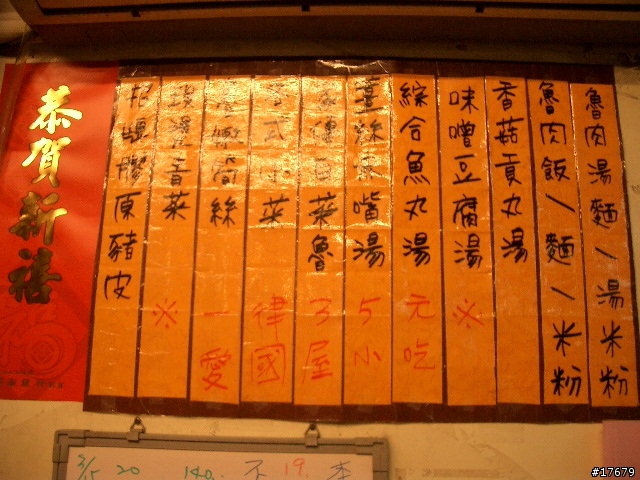 魯肉湯麵/湯米粉
魯肉飯/麵/米粉
香菇貢丸湯
味噌豆腐湯
綜合魚丸湯
薑絲嘴湯
菜魯
式小菜
筍絲
香菜
膠原豬皮
※一律35元※
愛國屋小吃
恭賀新禧
20 140. 不 19.
#17679